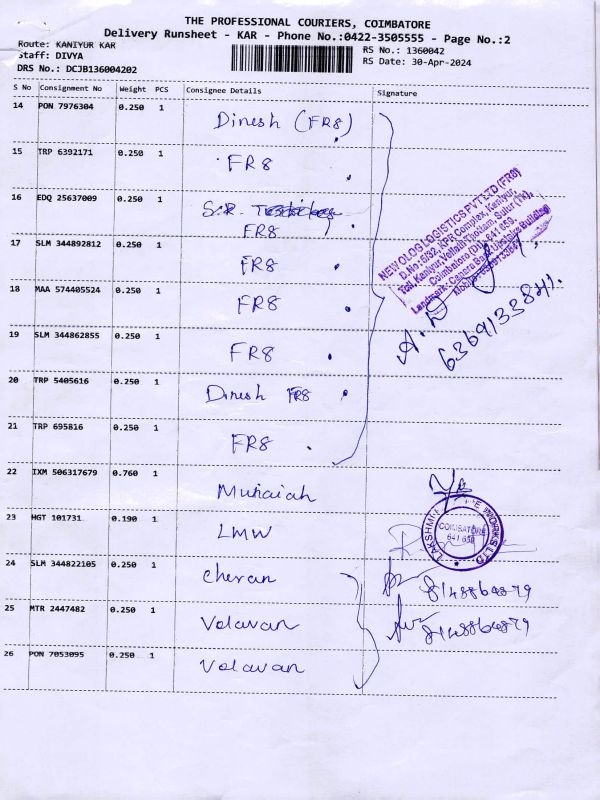 THE PROFESSIONAL COURIERS, COIMBATORE
Delivery Runsheet - KAR - Phone No.:0422-3505555 - Page No.:2
Route: KANIYUR KAR
Staff: DIVYA
DRS No.: DCJB136004202
RS No.: 1360042
RS Date: 30-Apr-2024
S No Consignment No Weight PCS Consignee Details Signature
14 PON 7976304 0.250 1 Dinesh (FR8)
15 TRP 6392171 0.250 1 FR8
16 EDQ 25637009 0.250 1 S.R.
FR8
17 SLM 344892812 0.250 1 FR8
18 MAA 574405524 0.250 1 FR8
19 SLM 344862855 0.250 1 FR8
20 TRP 5405616 0.250 1 Dinesh FR8
21 TRP 695816 0.250 1 FR8
NEW OLOG LOGISTICS PVT LTD (FR8)
D.No: 5/32, KPR Complex, Kaniyur,
Toll, Kaniyur, Sulur (Tk),
Coimbatore (Dt) - 641 659.
Landmark: Canara Bank Upstairs Building
6369133841.
22 IXM 506317679 0.760 1 Muraiah
23 HGT 101731 0.190 1 LMW
COIMBATORE
641 659
LAKSHMI WORKS LTD
24 SLM 344822105 0.250 1 Cheran 8148864879
25 MTR 2447482 0.250 1 Velavan 8148864879
26 PON 7053095 0.250 1 Velavan